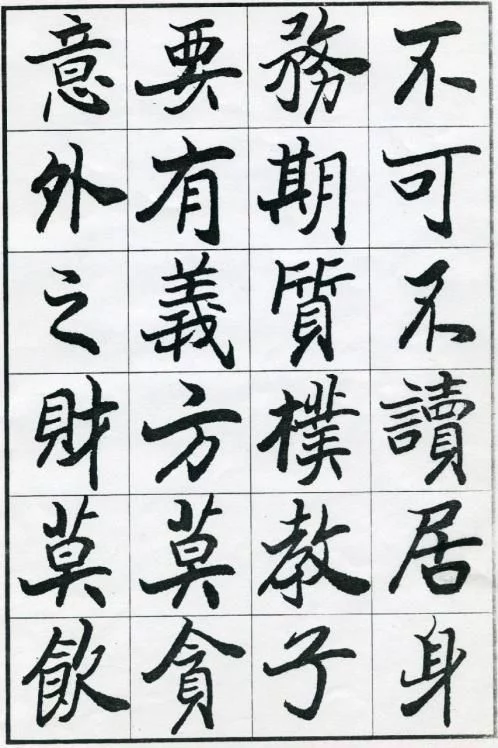 不可不讀居身
務期質樸教子
要有義方莫貪
意外之財莫飲